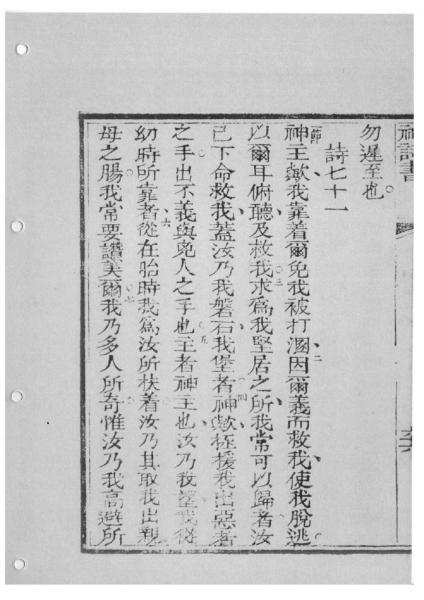 神詩書
勿遲至也
詩七十一
一節
神主歟我靠着爾免我被打溷因爾義而救我使我脫逃
二
以爾耳俯聽及救我求爲我堅居之所我常可以歸者汝
三
已下命救我蓋汝乃我磐石我堡者神歟拯援我出惡者
四
之手出不義與兇人之手也主者神主也汝乃我望我從
五
幼時所靠者從在胎時我爲汝所扶着汝乃其取我出親
六
母之腸我常要讚美爾我乃多人所奇惟汝乃我高避所
七